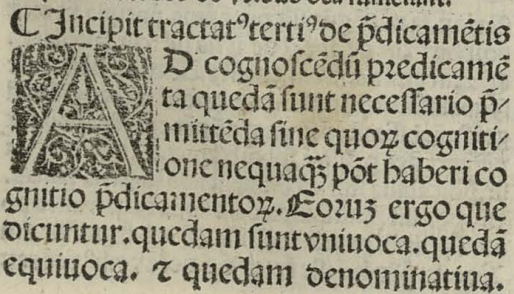 ¶ Incipit tractatꝰ tertiꝰ de p̄dicamētis
AD cognoſcēdū predicamē
ta quedā ſunt neceſſario p̄⸗
mittēda ſine quoꝝ cogniti⸗
one nequaq̄ꝫ põt haberi co
gnitio p̄dicamentoꝝ. Eoruꝫ ergo que
dicuntur. quedam ſunt vniuoca. quedā
equiuoca. ⁊ quedam denominatiua.